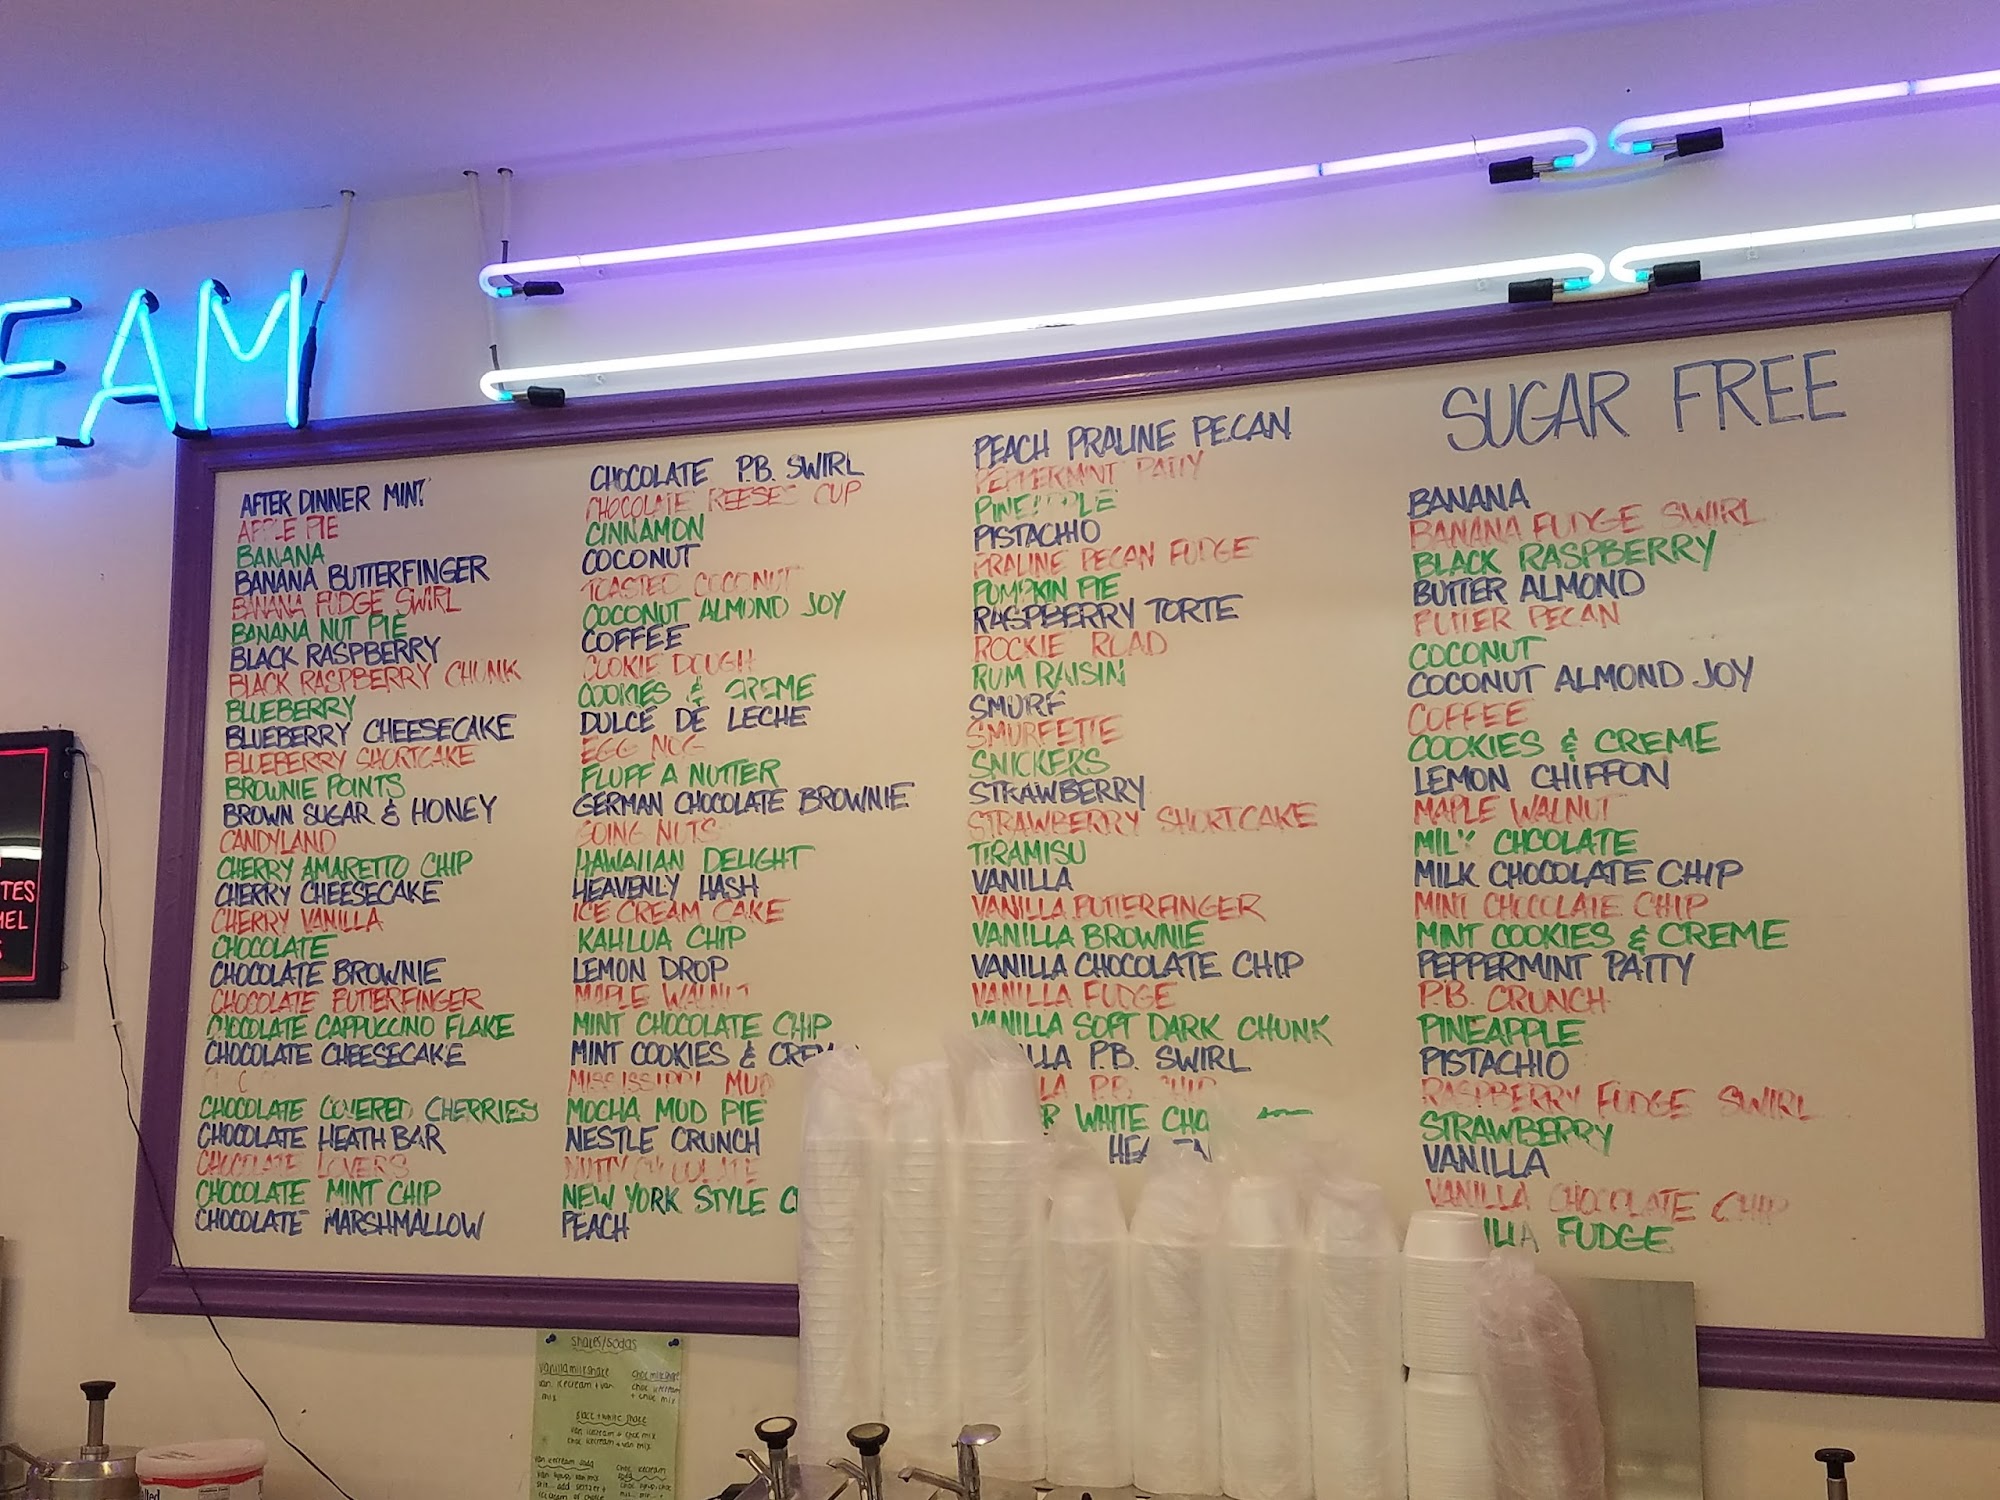 EAM
AFTER DINNER MINT
APPLE PIE
BANANA
BANANA BUTTERFINGER
BANANA FUDGE SWIRL
BANANA NUT PIE
BLACK RASPBERRY
BLACK RASPBERRY CHUNK
BLUEBERRY
BLUEBERRY CHEESECAKE
BLUEBERRY SHORTCAKE
BROWNIE POINTS
BROWN SUGAR & HONEY
CANDYLAND
CHERRY AMARETTO CHIP
CHERRY CHEESECAKE
CHERRY VANILLA
CHOCOLATE
CHOCOLATE BROWNIE
CHOCOLATE BUTTERFINGER
CHOCOLATE CAPPUCCINO FLAKE
CHOCOLATE CHEESECAKE
CHOCOLATE COVERED CHERRIES
CHOCOLATE HEATH BAR
CHOCOLATE LOVERS
CHOCOLATE MINT CHIP
CHOCOLATE MARSHMALLOW
CHOCOLATE P.B. SWIRL
CHOCOLATE REESES CUP
CINNAMON
COCONUT
TOASTED COCONUT
COCONUT ALMOND JOY
COFFEE
COOKIE DOUGH
COOKIES & CREME
DULCÉ DE LECHE
EGG NOG
FLUFF A NUTTER
GERMAN CHOCOLATE BROWNIE
GOING NUTS
HAWAIIAN DELIGHT
HEAVENLY HASH
ICE CREAM CAKE
KAHLUA CHIP
LEMON DROP
MAPLE WALNUT
MINT CHOCOLATE CHIP
MINT COOKIES & CREM
MISSISSIPPI MUD
MOCHA MUD PIE
NESTLE CRUNCH
NUTTY CHOCOLATE
NEW YORK STYLE C
PEACH
PEACH PRALINE PECAN
PEPPERMINT PATTY
PINEAPPLE
PISTACHIO
PRALINE PECAN FUDGE
PUMPKIN PIE
RASPBERRY TORTE
ROCKIE ROAD
RUM RAISIN
SMURF
SMURFETTE
SNICKERS
STRAWBERRY
STRAWBERRY SHORTCAKE
TIRAMISU
VANILLA
VANILLA BUTTERFINGER
VANILLA BROWNIE
VANILLA CHOCOLATE CHIP
VANILLA FUDGE
VANILLA SOFT DARK CHUNK
LLA P.B. SWIRL
LA P.B. CHIP
R WHITE CHO
SUGAR FREE
BANANA
BANANA FUDGE SWIRL
BLACK RASPBERRY
BUTTER ALMOND
BUTTER PECAN
COCONUT
COCONUT ALMOND JOY
COFFEE
COOKIES & CREME
LEMON CHIFFON
MAPLE WALNUT
MILK CHCOLATE
MILK CHOCOLATE CHIP
MINT CHOCOLATE CHIP
MINT COOKIES & CREME
PEPPERMINT PATTY
P.B. CRUNCH
PINEAPPLE
PISTACHIO
RASPBERRY FUDGE SWIRL
STRAWBERRY
VANILLA
VANILLA CHOCOLATE CHIP
ILLA FUDGE
TES
MEL
S
shakes/sodas
vanilla milkshake
van. icecream + van
mix
choc milkshake
choc icecream
+ choc mix
Black + white shake
van icecream + choc mix
choc icecream + van mix
van icecream soda
choc icecream
soda